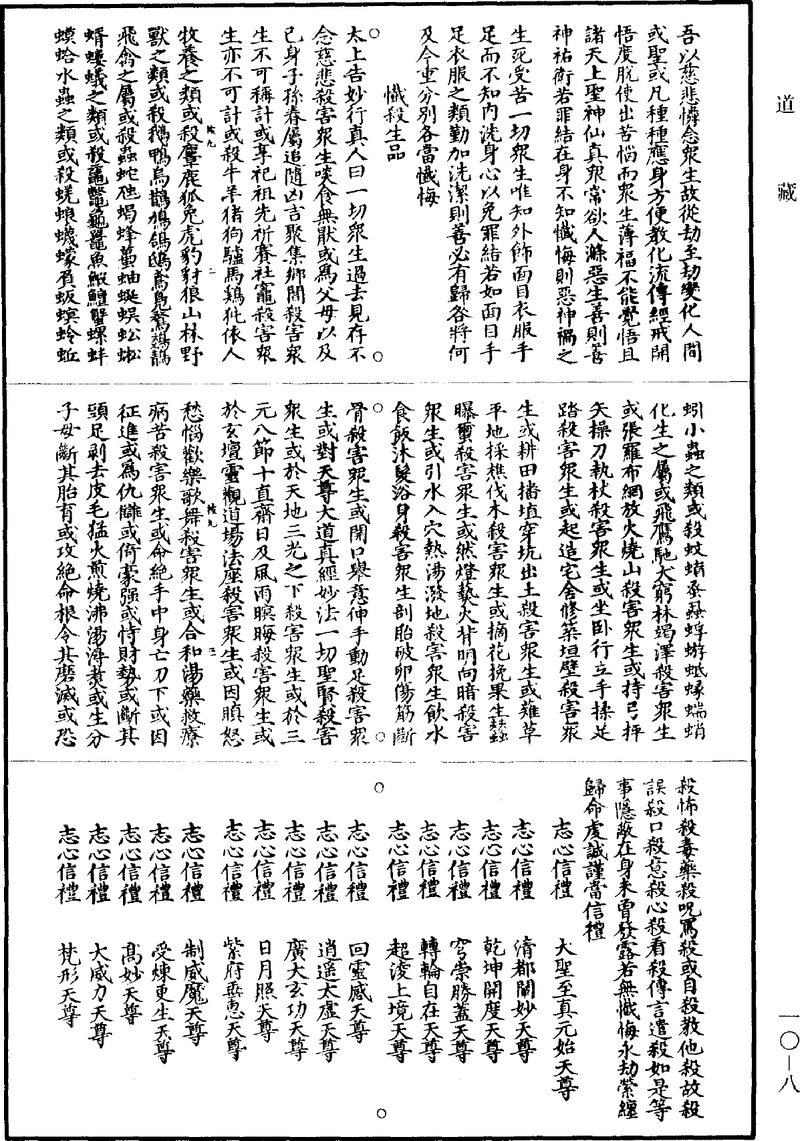 道藏
吾以慈悲憐念眾生故從劫至劫變化人間
或聖或凡種種應身方便教化流傳經戒開
悟度脫使出苦惱而眾生薄福不能覺悟且
諸天上聖神仙真眾常欲人滌惡生善則善
神祐衛若罪結在身不知懺悔則惡神禍之
生死受苦一切眾生唯知外飾面目衣服手
足而不知內洗身心以免罪結若如面目手
足衣服之類勤加洗潔則善必有歸各將何
及今重分別各當懺悔
懺殺生品
太上告妙行真人曰一切眾生過去見存不
念慈悲殺害眾生啖食無猒或為父母以及
己身子孫眷屬追隨凶吉聚集鄉閭殺害眾
生不可稱計或享祀祖先祈賽社竈殺害眾
生亦不可計或殺牛羊猪狗驢馬鷄㹠依人
牧養之類或殺麞鹿狐兔虎豹豺狼山林野
獸之類或殺鵝鴨烏鵲鴉鴿鴟鳶鳧鶩鴻鶴
飛禽之屬或殺蟲蛇虺蝎蜂蠆蚰蜒蜈蚣蜥
蜴螻蟻之類或殺黿鼈龜鼉魚蝦鱣蟹螺蚌
蟆蛤水蟲之類或殺蜣蜋蠛蠓負蝂螟蛉蚯
蚓小蟲之類或殺蚊蜹蚤蝨蜉蝣蚳蝝蝡蛸
化生之屬或飛鷹馳犬窮林竭澤殺害眾生
或張羅布網放火燒山殺害眾生或持弓抨
矢操刀執杖殺害眾生或坐臥行立手揉足
踏殺害眾生或起造宅舍修築垣壁殺害眾
生或耕田播埴穿坑出土殺害眾生或薙草
平地採樵伐木殺害眾生或摘花挽果生蠶
曝蠒殺害眾生或然燈爇火背明向暗殺害
眾生或引水入穴熱湯潑地殺害眾生飲水
食飯沐髮浴身殺害眾生剖胎破卵傷筋斷
骨殺害眾生或開口舉意伸手動足殺害眾
生或對天尊大道真經妙法一切聖賢殺害
眾生或於天地三光之下殺害眾生或於三
元八節十直齋日及風雨暝晦殺害眾生或
於玄壇靈觀道場法座殺害眾生或因瞋怒
愁惱歡樂歌舞殺害眾生或合和湯藥救療
病苦殺害眾生或命絕手中身亡刀下或因
征進或為仇讎或倚豪强或恃財勢或斷其
頭足剥去皮毛猛火煎燒沸湯潯煮或生分
子母斷其胎育或攻絕命根令其磨滅或恐
殺怖殺毒藥殺呪罵殺或自殺教他殺故殺
誤殺口殺意殺心殺看殺傳言遣殺如是等
事隱蔽在身未曾發露若無懺悔永劫縈纏
歸命虔誠謹當信禮
志心信禮 大聖至真元始天尊
志心信禮 清都闡妙天尊
志心信禮 乾坤開度天尊
志心信禮 穹崇勝蓋天尊
志心信禮 轉輪自在天尊
志心信禮 超淩上境天尊
志心信禮 回靈感天尊
志心信禮 逍遥太虛天尊
志心信禮 廣大玄功天尊
志心信禮 日月照天尊
志心信禮 紫府垂惠天尊
志心信禮 制威魔天尊
志心信禮 受煉更生天尊
志心信禮 高妙天尊
志心信禮 大威力天尊
志心信禮 梵形天尊
一〇－八